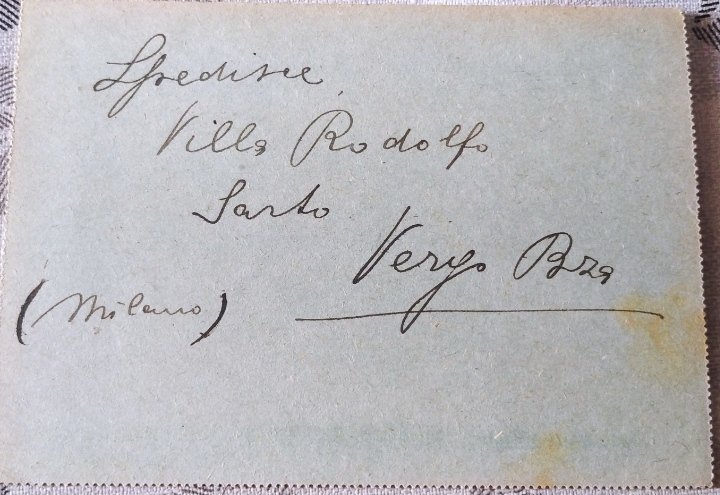 Spedisce
Villa Rodolfo
Sarto
Vergo Bza
(Milano)